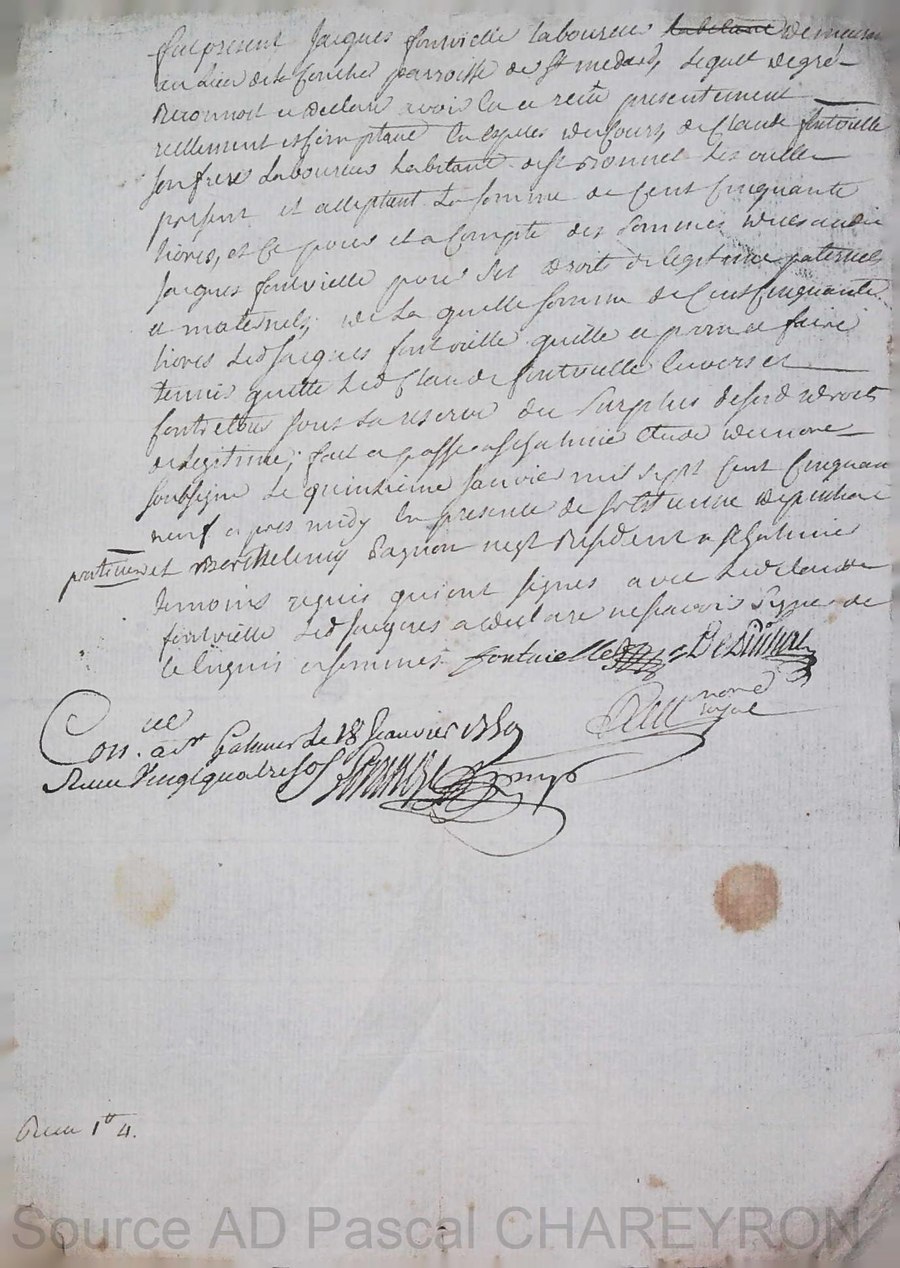 fut present Jacques fontvielle laboureur habitant demeurant
au lieu de la fouche parroisse de st medard, lequel de gré
Reconnoit et declare avoir eu et receu presentement
reellement en espèces du cours, de Claude fontvielle
son frere laboureur habitant de st Bonnet les oulles
present et acceptant la somme de Cent Cinquante
livres, et ce pour et a compte des sommes dues audit
Jacques fontvielle pour ses droits de legitime paternels
et maternels, de la quelle somme de Cent Cinquante
livres led Jacques fontvielle quitte et promet faire
tenir quitte led Claude fontvielle envers et
contre tous sous la reserve du surplus de sesd droits
de legitime; fait et passé a st galmier etude du nore
soubsigné le quinzieme janvier mil sept cent cinquante
neuf apres midy en presence de
praticien et Barthelemy Pagnon negt Resident a st galmier
temoins requis qui ont signés avec led Claude
fontvielle led Jacques a declaré ne scavoir signer de
ce enquis et sommé. fontvielle
nore
royal
Con.lle a st Galmier le 18 Janvier 1759
Receu Vingt quatre sols
Receu 1tt 4.
Source AD Pascal CHAREYRON